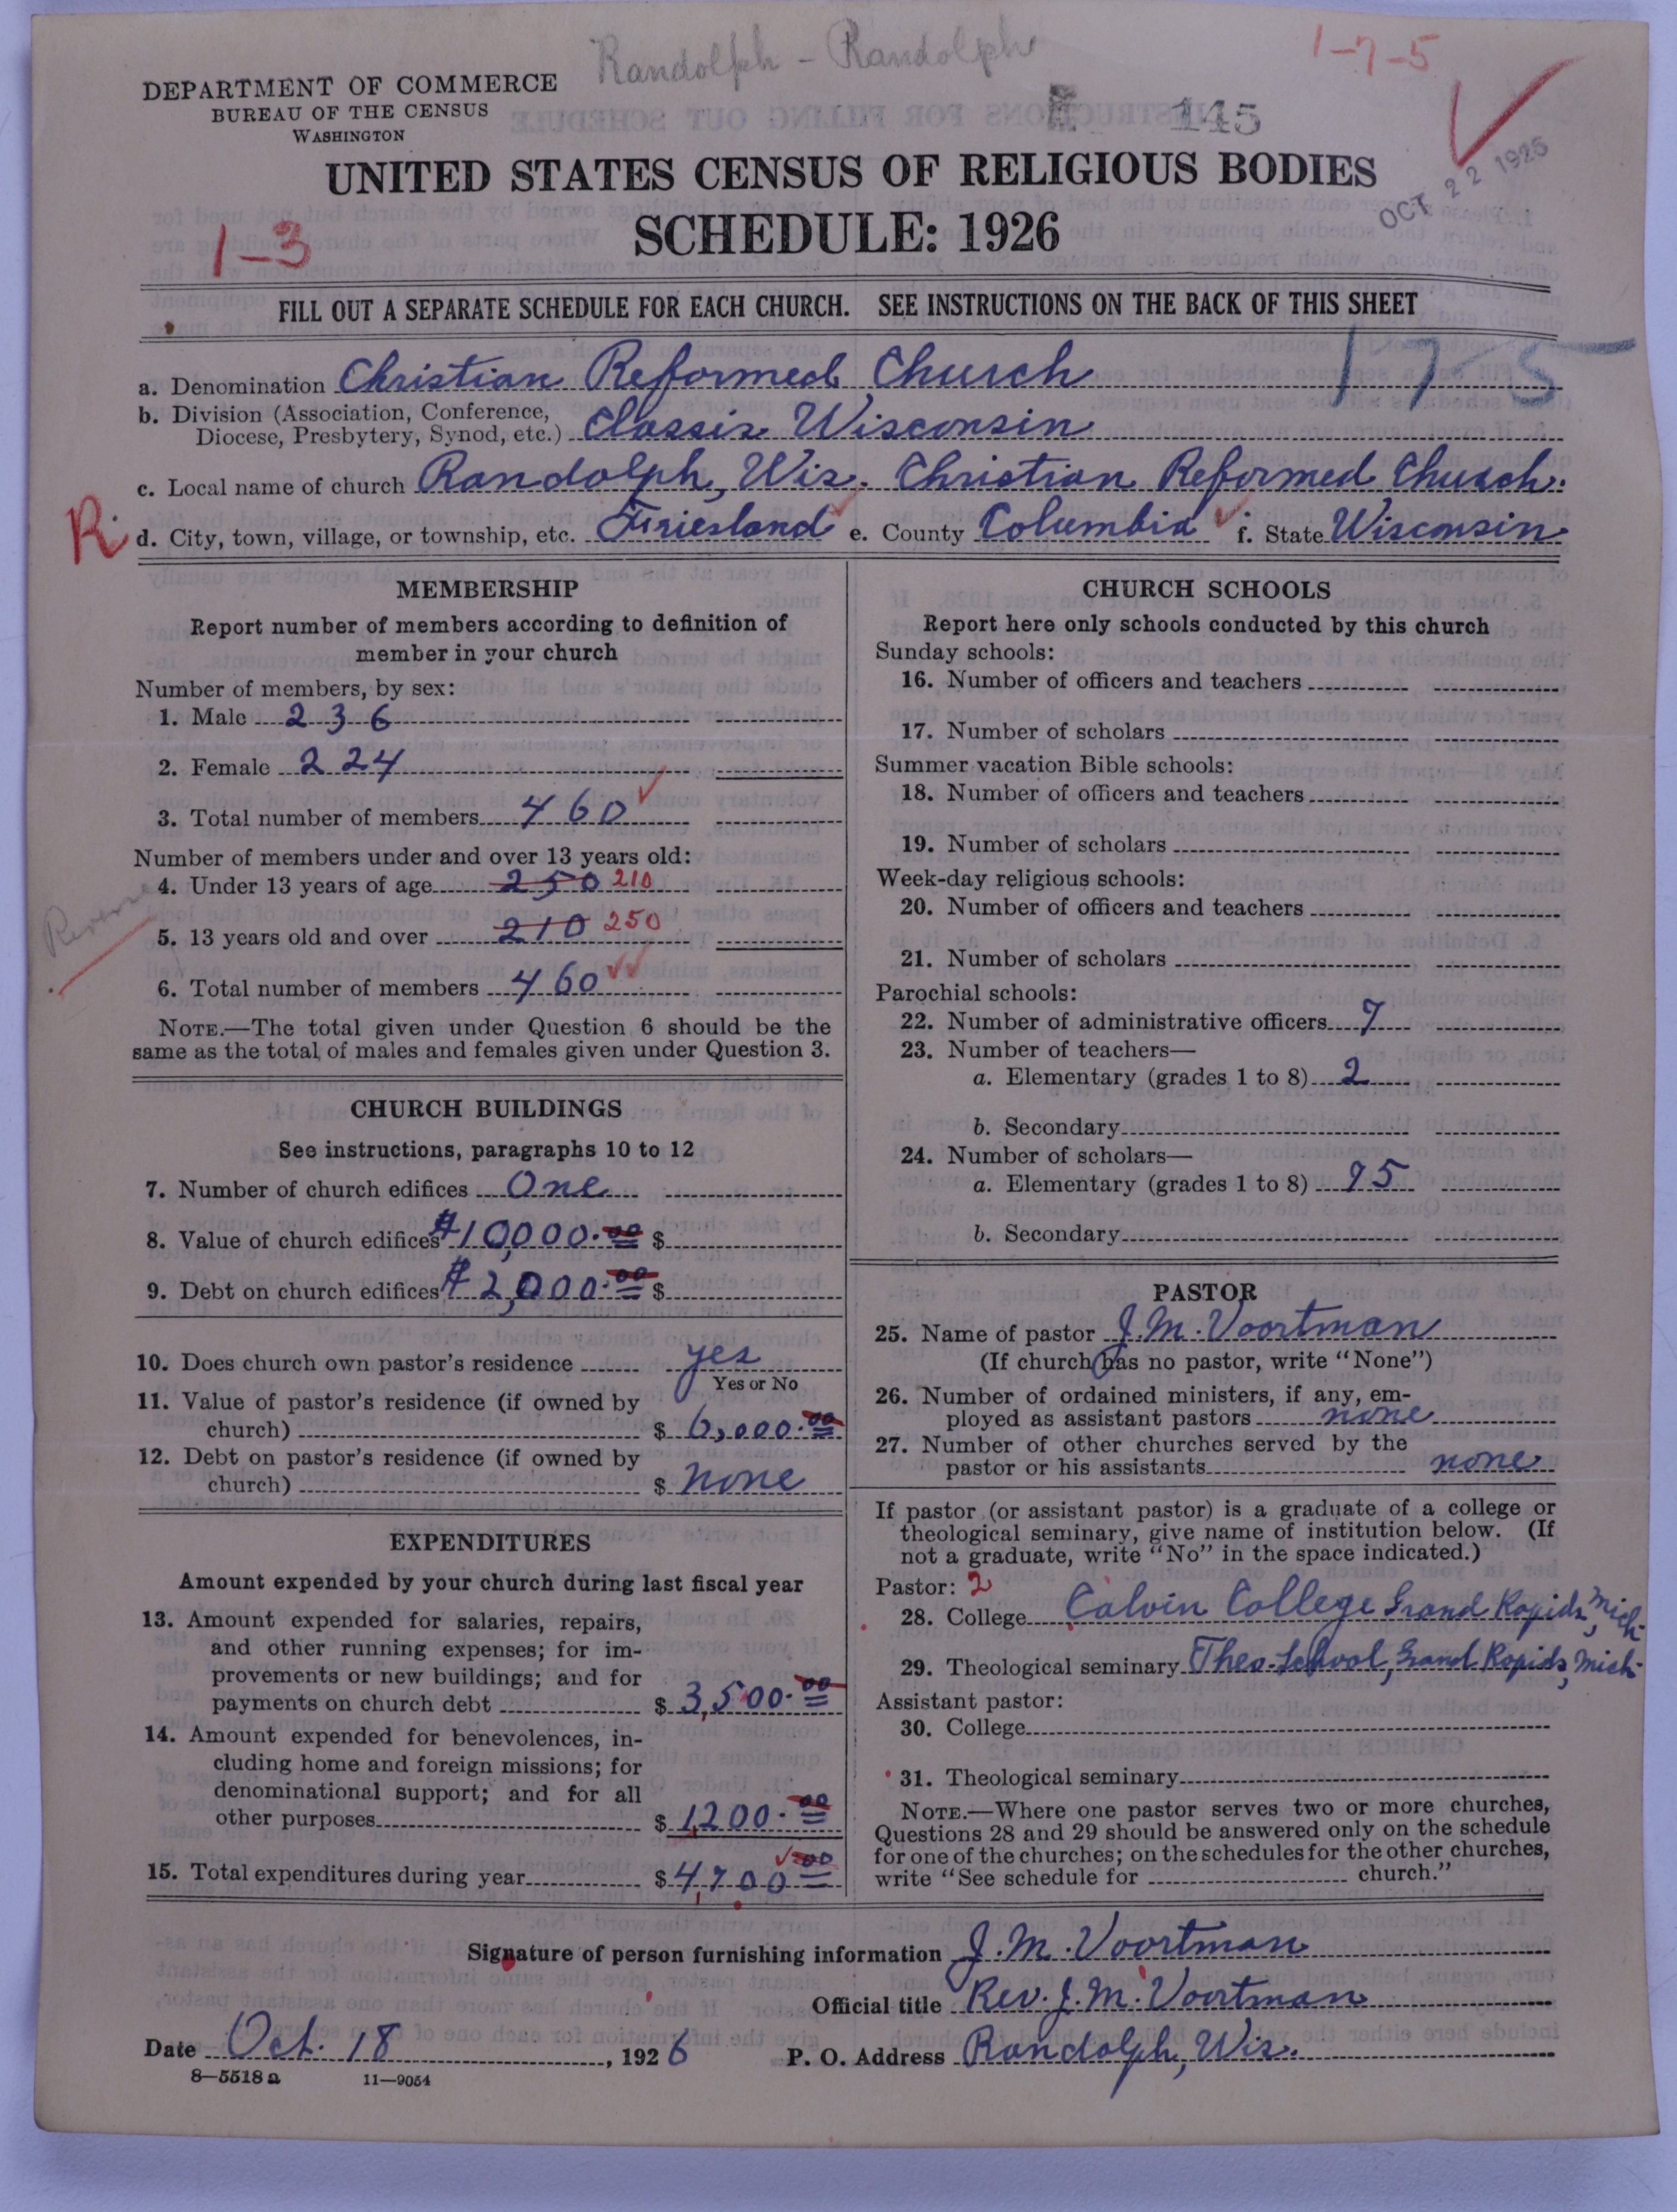 Randolph - Randolph
1-7-5
DEPARTMENT OF COMMERCE
BUREAU OF THE CENSUS
WASHINGTON
145
OCT 22 1926
UNITED STATES CENSUS OF RELIGIOUS BODIES
SCHEDULE: 1926
1-3
FILL OUT A SEPARATE SCHEDULE FOR EACH CHURCH. SEE INSTRUCTIONS ON THE BACK OF THIS SHEET
175
a. Denomination Christian Reformed Church
b. Division (Association, Conference,
Diocese, Presbytery, Synod, etc.) Classis Wisconsin
c. Local name of church Randolph, Wis. Christian Reformed Church.
R. d. City, town, village, or township, etc. Friesland e. County Columbia f. State Wisconsin
MEMBERSHIP
Report number of members according to definition of
member in your church
Number of members, by sex:
1. Male 236
2. Female 224
3. Total number of members 460
Number of members under and over 13 years old:
4. Under 13 years of age 250 210
5. 13 years old and over 210 250
6. Total number of members 460
NOTE.—The total given under Question 6 should be the
same as the total of males and females given under Question 3.
CHURCH BUILDINGS
See instructions, paragraphs 10 to 12
7. Number of church edifices One
8. Value of church edifices $10,000.00 $
9. Debt on church edifices $2,000.00 $
10. Does church own pastor's residence yes
Yes or No
11. Value of pastor's residence (if owned by
church) $ 6,000.00
12. Debt on pastor's residence (if owned by
church) $ none
EXPENDITURES
Amount expended by your church during last fiscal year
13. Amount expended for salaries, repairs,
and other running expenses; for im-
provements or new buildings; and for
payments on church debt $ 3,500.00
14. Amount expended for benevolences, in-
cluding home and foreign missions; for
denominational support; and for all
other purposes $ 1,200.00
15. Total expenditures during year $ 4,700.00
CHURCH SCHOOLS
Report here only schools conducted by this church
Sunday schools:
16. Number of officers and teachers
17. Number of scholars
Summer vacation Bible schools:
18. Number of officers and teachers
19. Number of scholars
Week-day religious schools:
20. Number of officers and teachers
21. Number of scholars
Parochial schools:
22. Number of administrative officers 7
23. Number of teachers—
a. Elementary (grades 1 to 8) 2
b. Secondary
24. Number of scholars—
a. Elementary (grades 1 to 8) 95
b. Secondary
PASTOR
25. Name of pastor J. M. Voortman
(If church has no pastor, write "None")
26. Number of ordained ministers, if any, em-
ployed as assistant pastors none
27. Number of other churches served by the
pastor or his assistants none
If pastor (or assistant pastor) is a graduate of a college or
theological seminary, give name of institution below. (If
not a graduate, write "No" in the space indicated.)
Pastor: 2
28. College Calvin College Grand Rapids, Mich.
29. Theological seminary Theo. School, Grand Rapids, Mich.
Assistant pastor:
30. College
31. Theological seminary
NOTE.—Where one pastor serves two or more churches,
Questions 28 and 29 should be answered only on the schedule
for one of the churches; on the schedules for the other churches,
write "See schedule for church."
Signature of person furnishing information J. M. Voortman
Official title Rev. J. M. Voortman
Date Oct. 18, 1926 P. O. Address Randolph, Wis.
8—5518 a 11—9054